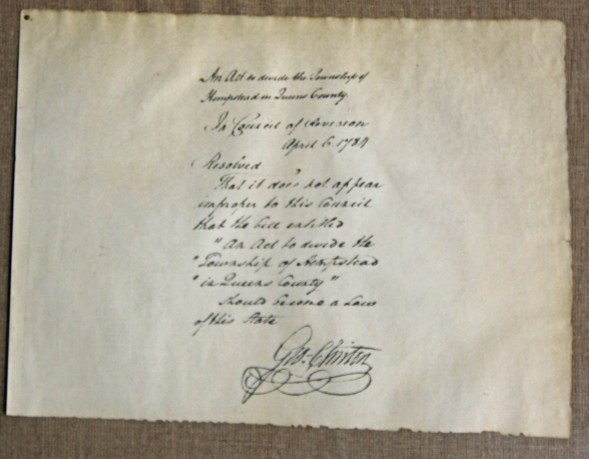 An Act to divide the Township of
Hempstead in Queens County
In Council of Revision
April 6 1784
Resolved
That it does not appear
improper to this Council
that the bill entitled
" An Act to divide the
" Township of Hempstead
" in Queens County "
should become a Law
of this State
Geo. Clinton